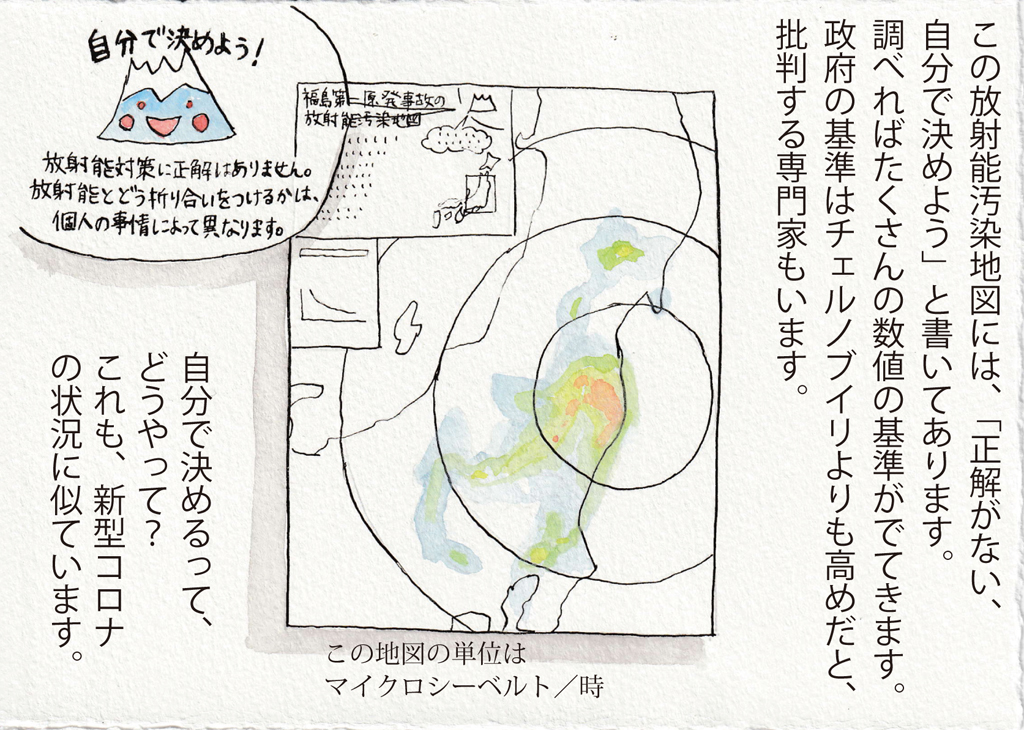 この放射能汚染地図には、「正解がない、
自分で決めよう」と書いてあります。
調べればたくさんの数値の基準がでてきます。
政府の基準はチェルノブイリよりも高めだと、
批判する専門家もいます。
自分で決めよう!
放射能対策に正解はありません。
放射能とどう折り合いをつけるかは、
個人の事情によって異なります。
福島第一原発事故の
放射能汚染地図
自分で決めるって、
どうやって?
これも、新型コロナ
の状況に似ています。
この地図の単位は
マイクロシーベルト/時